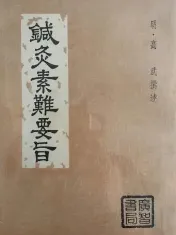 明·高 武撰述
鍼灸素難要旨
廣智書局